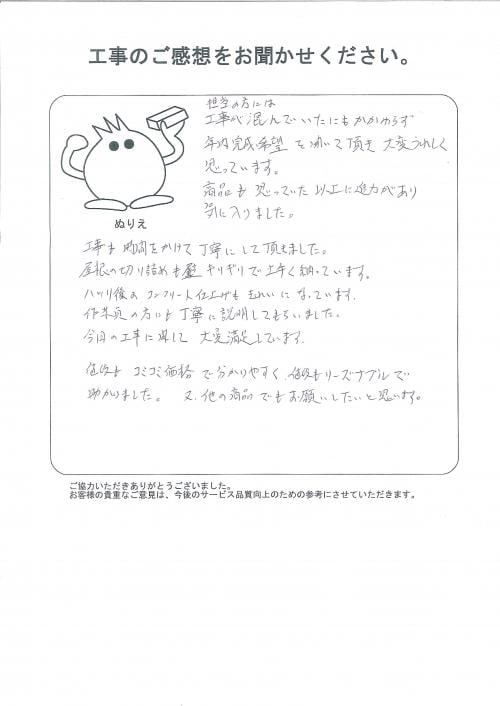 工事のご感想をお聞かせください。
担当の方には
工事が混んでいたにもかかわらず
年内完成希望を聞いて頂き 大変うれしく
思っています。
商品も思っていた以上に迫力があり
気に入りました。
ぬりえ
工事も時間をかけて丁寧にして頂きました。
屋根の切り詰めも壁ギリギリで上手く納っています。
ハツリ後のコンクリート仕上げもきれいになっています。
作業員の方にも丁寧に説明してもらいました。
今回の工事に関して 大変満足しています。
価格も コミコミ価格で分かりやすく、価格もリーズナブルで
助かりました。 又、他の商品でもお願いしたいと思います。
ご協力いただきありがとうございました。
お客様の貴重なご意見は、今後のサービス品質向上のための参考にさせていただきます。